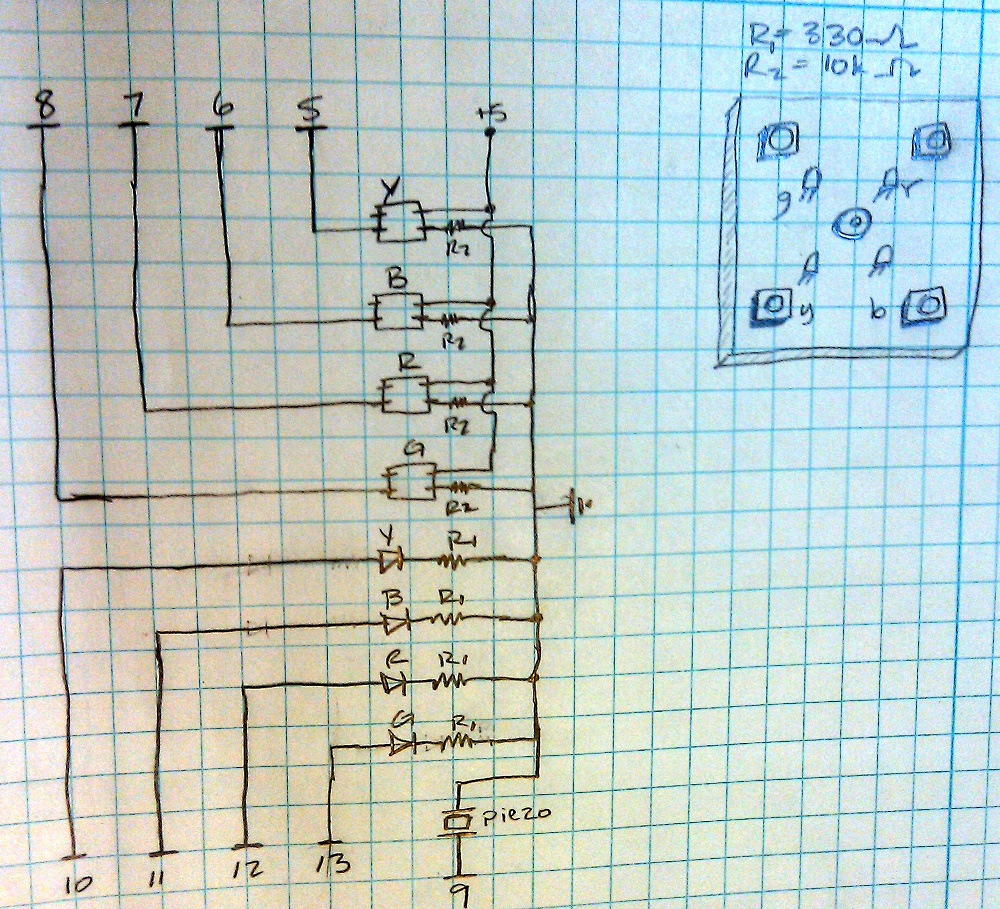 R1 = 330Ω
R2 = 10k Ω
8 7 6 5 +5
Y
R2
B
R2
R
R2
G
R2
Y R1
B R1
R R1
G R1
piezo
10 11 12 13 9
g r
y b